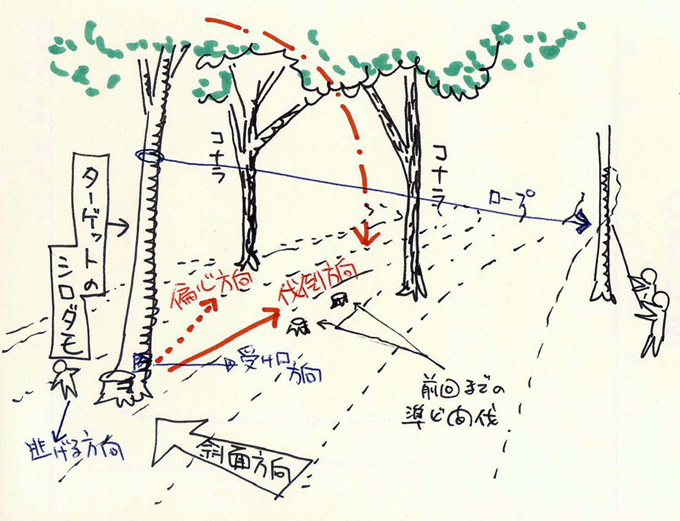 コナラ
コナラ
ロープ
ターゲットの
シロダモ
偏心方向
伐倒方向
受け口
方向
前回までの
逃げる方向
斜面方向